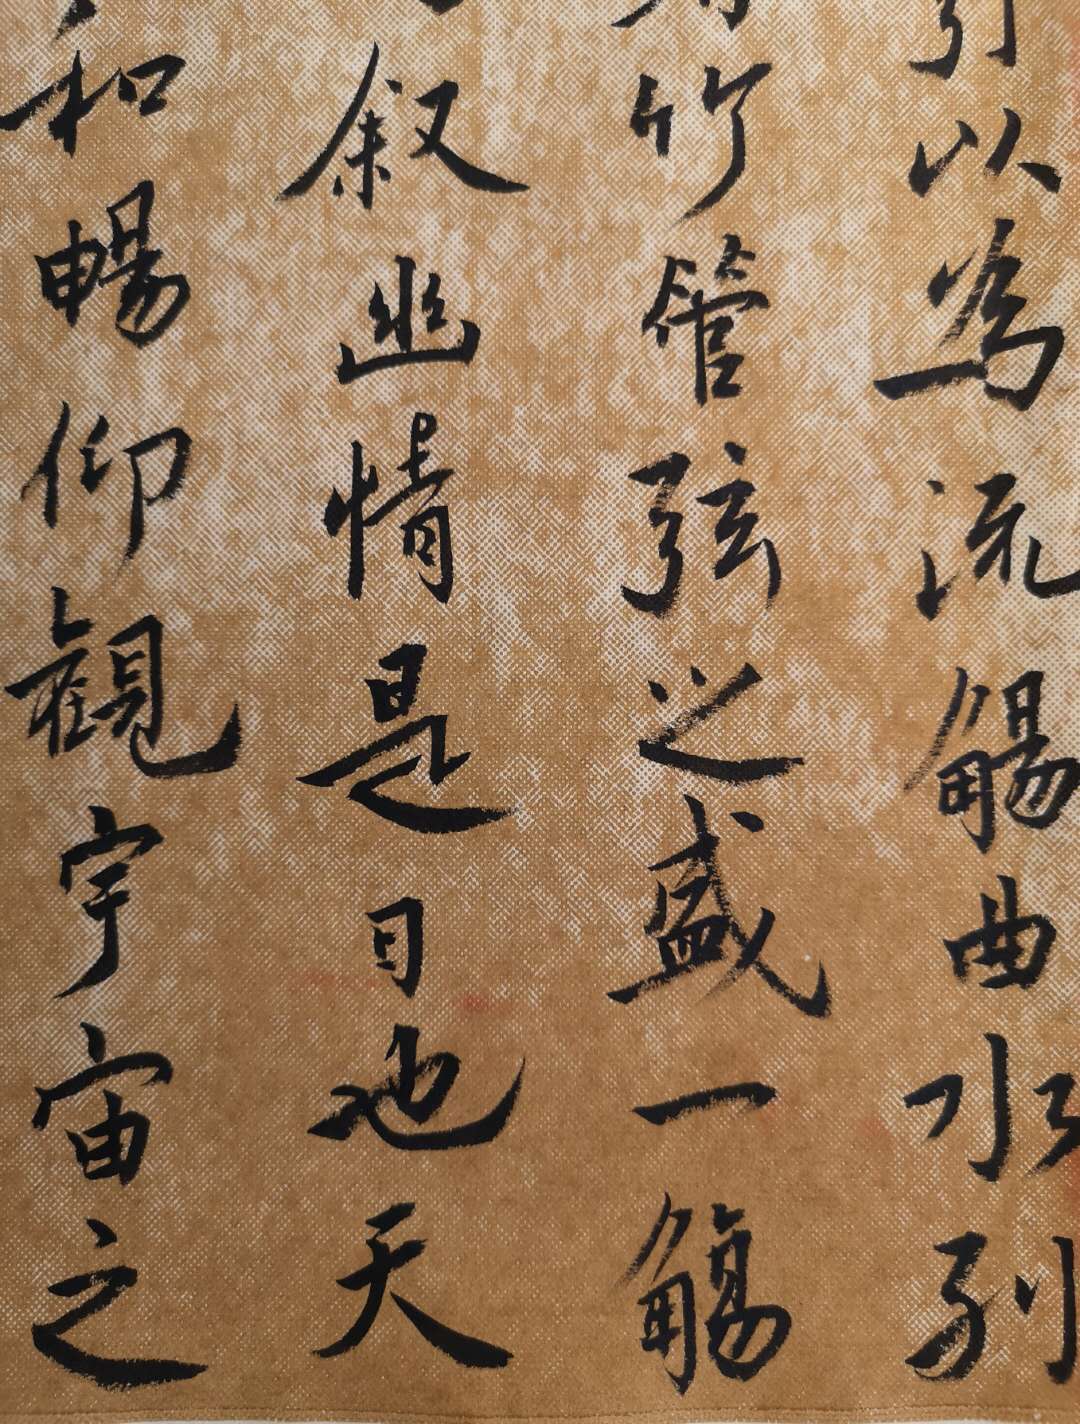 引以為流觴曲水列
竹管弦之盛一觴
叙幽情是日也天
和暢仰觀宇宙之